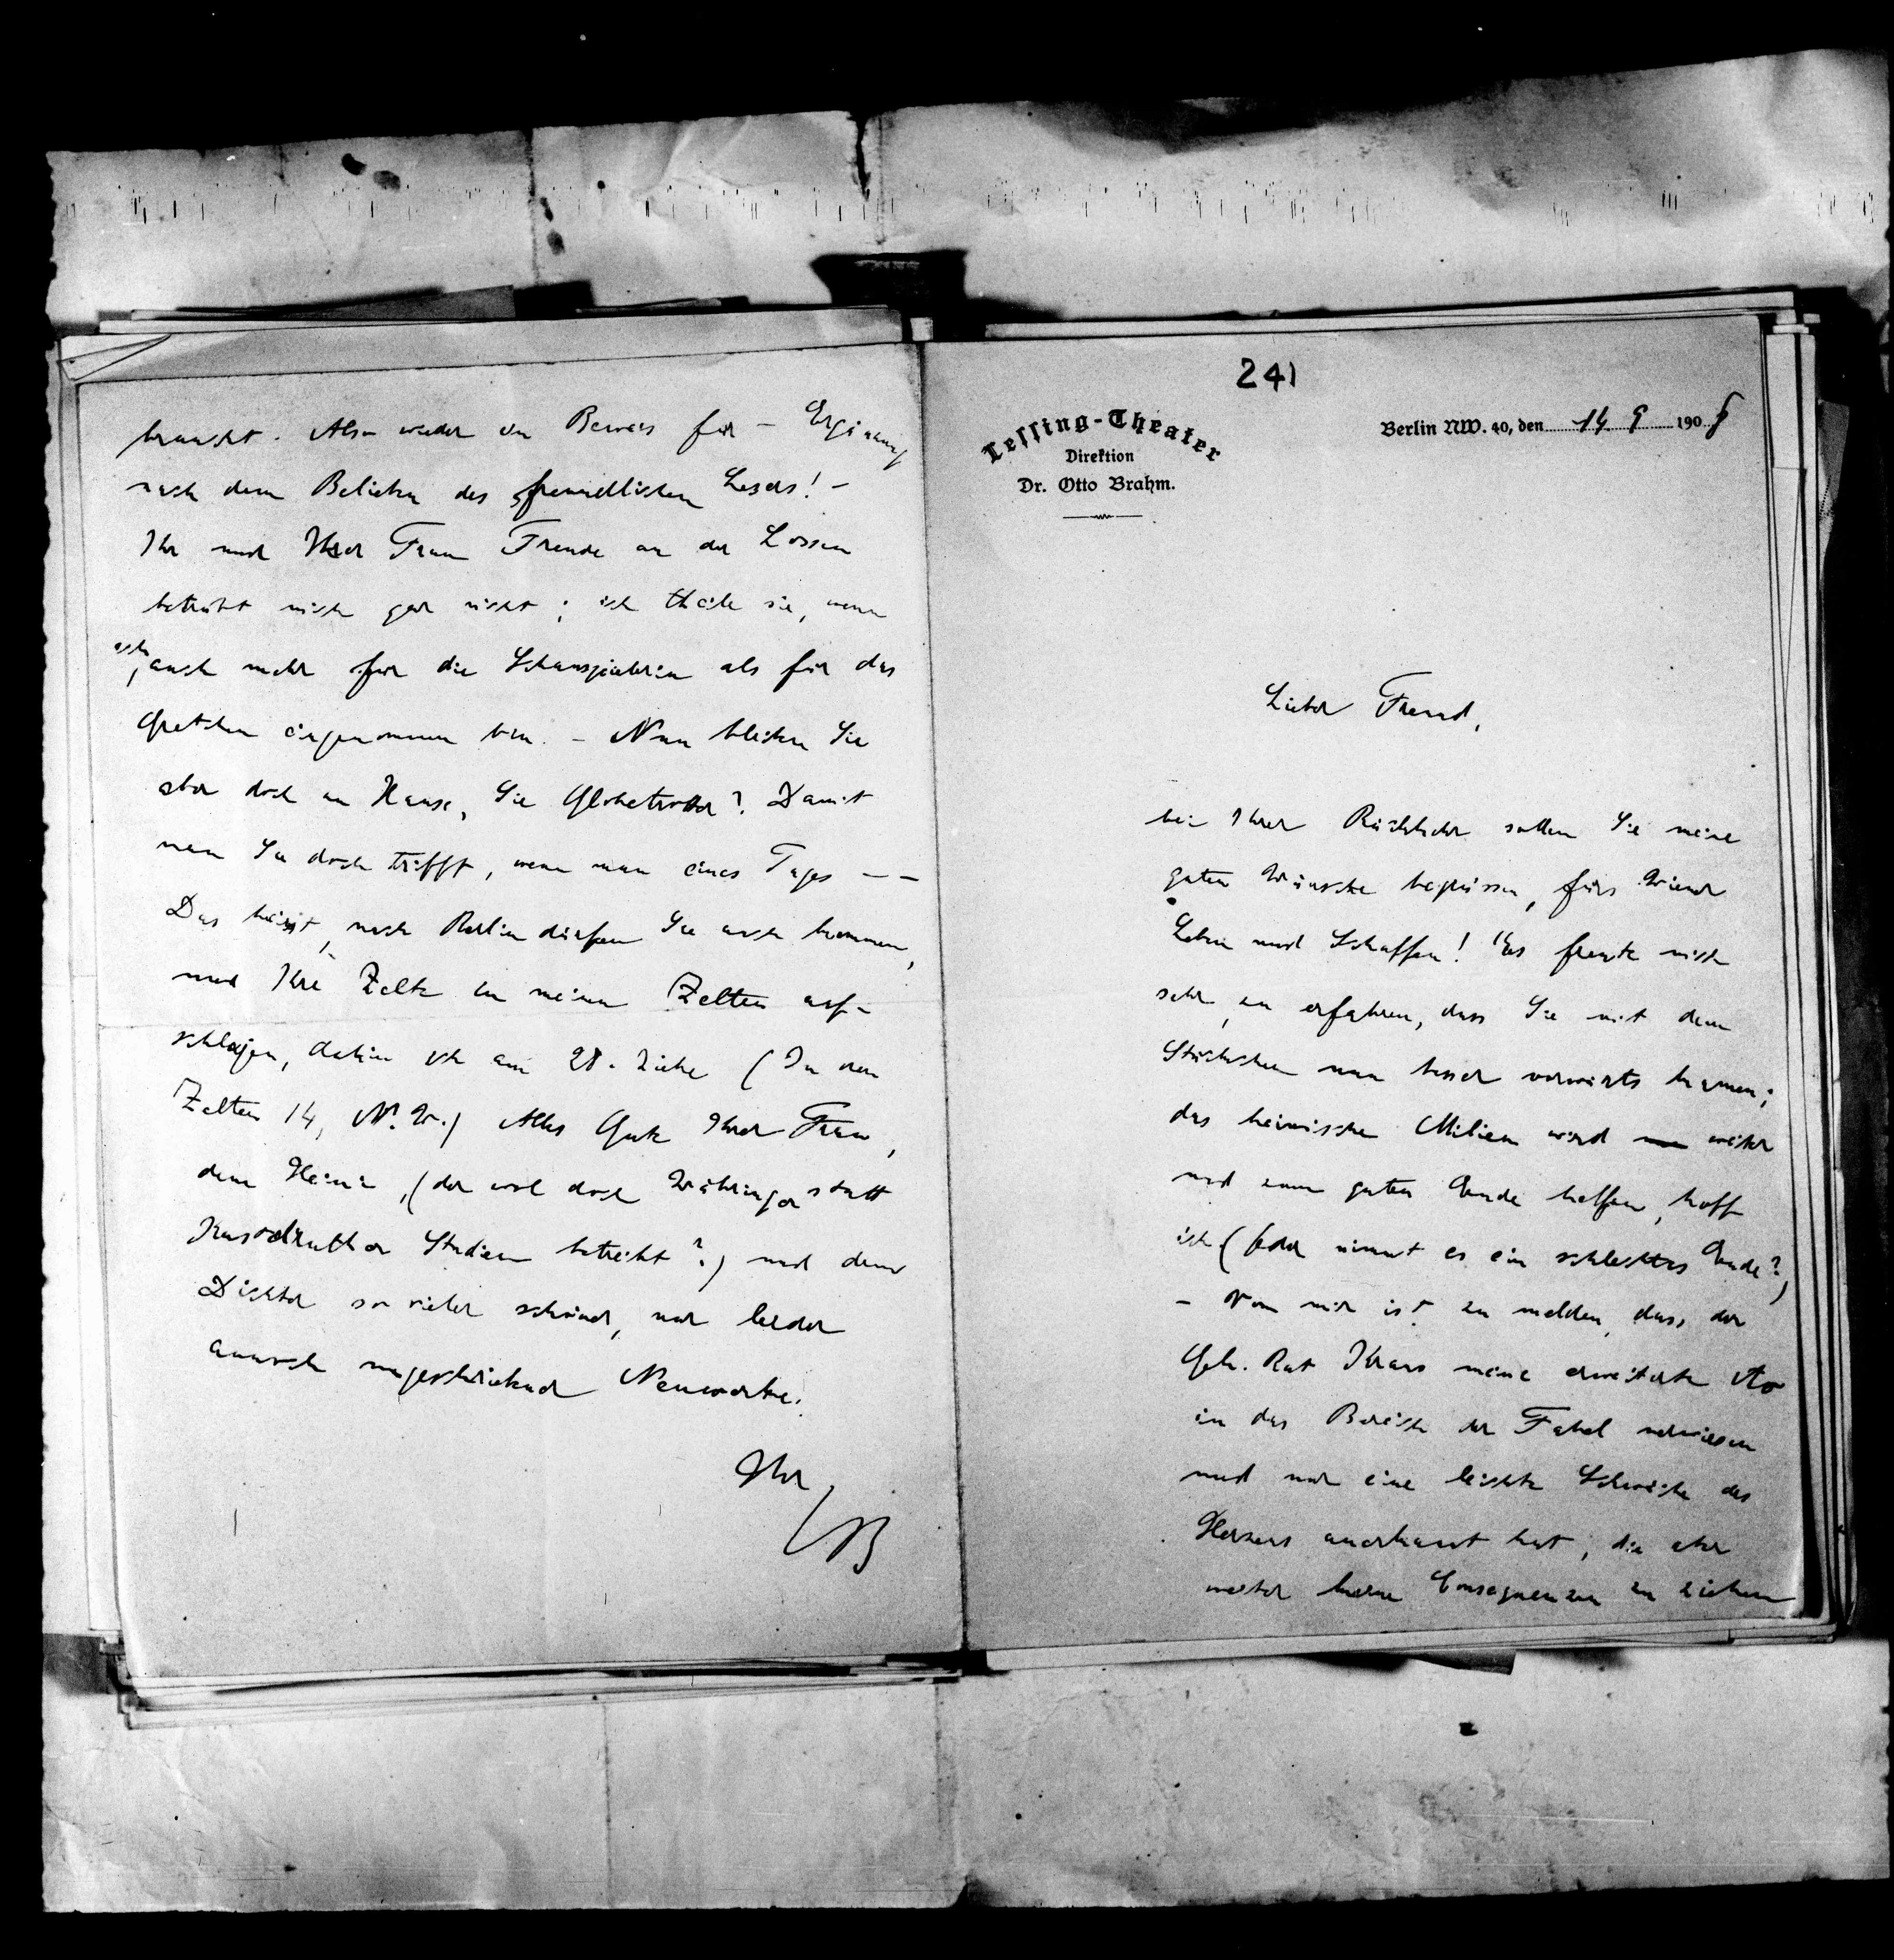 241
Lessing-Theater
Direktion
Dr. Otto Brahm.
Berlin NW. 40, den 14. 9 1908
Lieber Freund,
bei Ihrer Rückkehr sollen Sie meine
guten Wünsche begrüssen, fürs Wiener
Leben und Schaffen! Es freute mich
sehr, zu erfahren, dass Sie mit dem
Stückchen nun besser vorwärts kamen;
das heimische Milieu wird weiter
und zum guten Ende helfen, hoff
ich (oder nimmt es ein schlechtes Ende?)
– Von mir ist zu melden, dass der
Geh. Rat Kraus meine erweiterte Ao
in das Bereich der Fabel verwiesen
und nur eine leichte Schwäche des
Herzens anerkannt hat, die aber
weiter keine Consequenzen zu ziehen
braucht. Also wieder ein Beweis für – Ergänzung
nach dem Belieben des freundlichen Lesers! –
Ihr und Ihrer Frau Freude an der Lossen
betrübt mich gar nicht; ich theile sie, wenn
ich auch mehr für die Schauspielerin als für das
Gretchen eingenommen bin. – Nun bleiben Sie
aber doch zu Hause, Sie Globetrotter? Damit
man Sie doch trifft, wenn man eines Tages – –
Das heisst, nach Berlin dürfen Sie auch kommen,
und Ihre Zelte in meinen Zelten auf-
schlagen, dahin ich am 28. ziehe (In den
Zelten 14, N.W.) Alles Gute Ihrer Frau,
dem Heini, (der wol doch Währinger statt
Kastelruther Studien betreibt?) und dem
Dichter so vieler schöner, nur leider
annoch ungeschriebener Neuwerke.
Ihr
OB